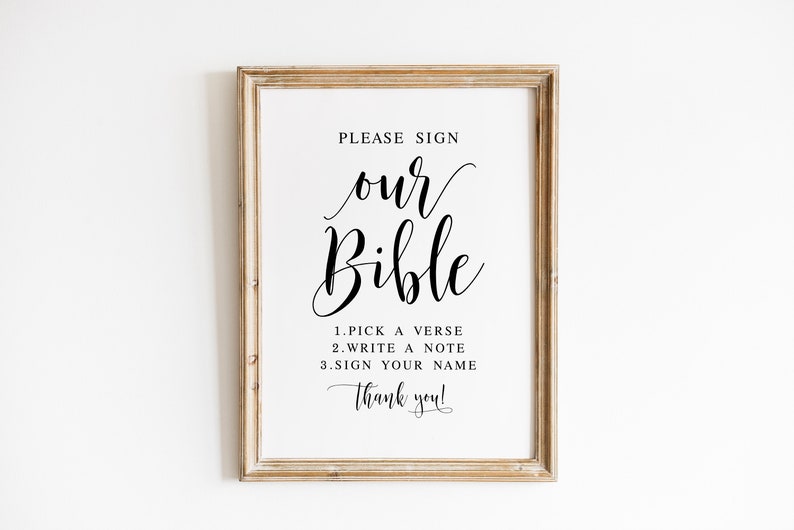 PLEASE SIGN
our
Bible
1.PICK A VERSE
2.WRITE A NOTE
3.SIGN YOUR NAME
thank you!